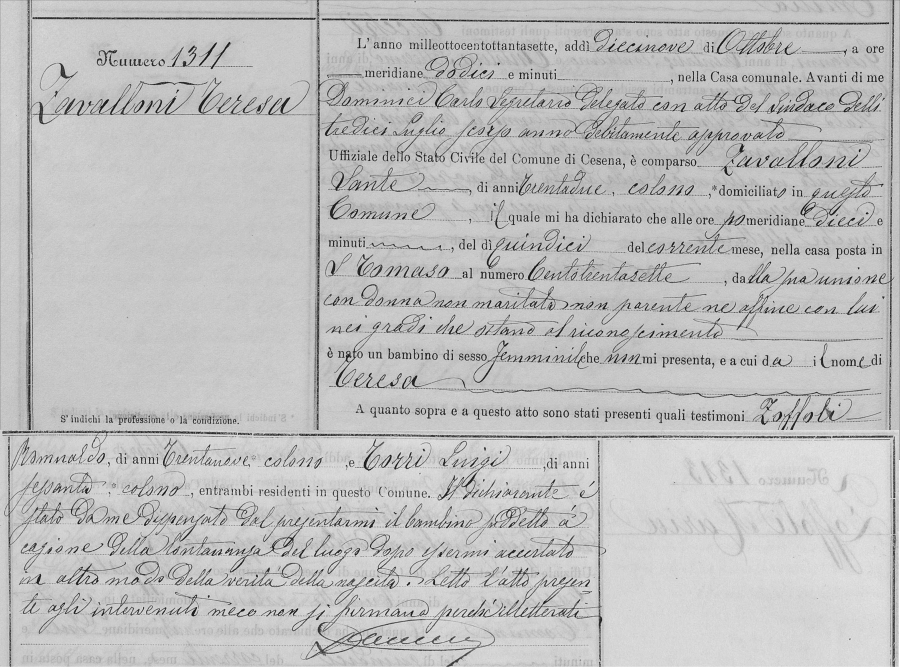 Numero 1311
Zavalloni Teresa
S'indichi la professione o la condizione.
L'anno milleottocentottantasette, addì diecinove di Ottobre, a ore
meridiane dodici e minuti, nella Casa comunale. Avanti di me
Dominici Carlo Segretario Delegato con atto del Sindaco delli
tredici Luglio scorso anno debitamente approvato
Uffiziale dello Stato Civile del Comune di Cesena, è comparso Zavalloni
Sante, di anni trentadue, colono, domiciliato in questo
Comune, il quale mi ha dichiarato che alle ore pomeridiane dieci e
minuti, del dì quindici del corrente mese, nella casa posta in
S Tomaso al numero Centotrentasette, dalla sua unione
con donna non maritata non parente ne affine con lui
nei gradi che ostano al riconoscimento
è nato un bambino di sesso femminile che non mi presenta, e a cui da il nome di
Teresa
A quanto sopra e a questo atto sono stati presenti quali testimoni Zoffoli
Romualdo, di anni trentanove, colono, e Torri Luigi, di anni
sessanta, colono, entrambi residenti in questo Comune. Il dichiarante é
stato da me dispensato dal presentarmi il bambino sudetto a
cagione della lontananza del luogo dopo essermi accertato
in altro modo della verità della nascita. Letto l'atto presen-
te agli intervenuti meco non si firmano perché illetterati